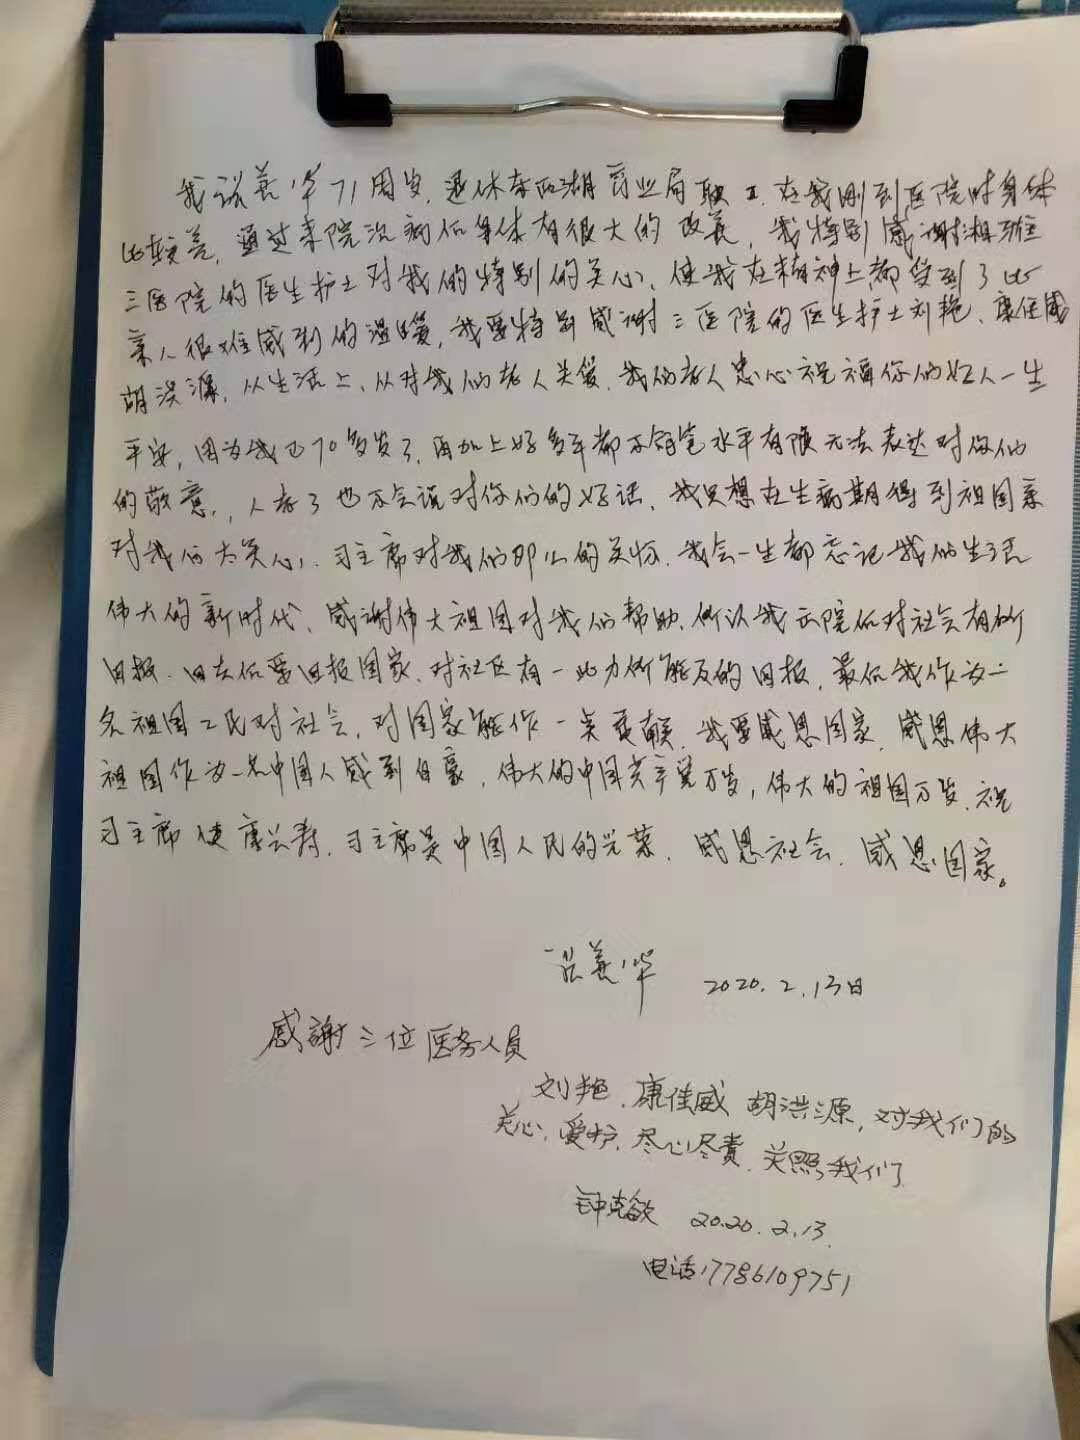 我谈善华71周岁，退休东西湖商业局职工，在我刚到医院时身体
比较差，通过来院治病后身体有很大的改善，我特别感谢湘雅
三医院的医生护士对我的特别的关心，使我在精神上都受到了比
亲人很难感到的温暖，我要特别感谢三医院的医生护士刘艳、康佳威
胡洪源，从生活上、从对我们老人关爱，我们老人忠心祝福你们好人一生
平安，因为我已70多岁了，再加上好多年都不写笔水平有限无法表达对你们
的敬意，人老了也不会说对你们的好话，我只想在生病期得到祖国亲
对我们太关心，习主席对我们那么的关怀，我会一生都忘记我们生活
伟大的新时代、感谢伟大祖国对我们帮助，所以我出院后对社会有所
回报，回去后要回报国家、对社区有一些力所能及的回报，最后我作为一
名祖国公民对社会，对国家能作一点贡献，我要感恩国家，感恩伟大
祖国作为一名中国人感到自豪，伟大的中国共产党万岁，伟大的祖国万岁，祝
习主席健康长寿，习主席是中国人民的光荣，感恩社会，感恩国家。
谈善华 2020.2.13日
感謝三位医务人员
刘艳、康佳威 胡洪源，对我们的
关心、爱护、尽心尽責，关照我们
钟克敏 2020.2.13.
电话17786109751